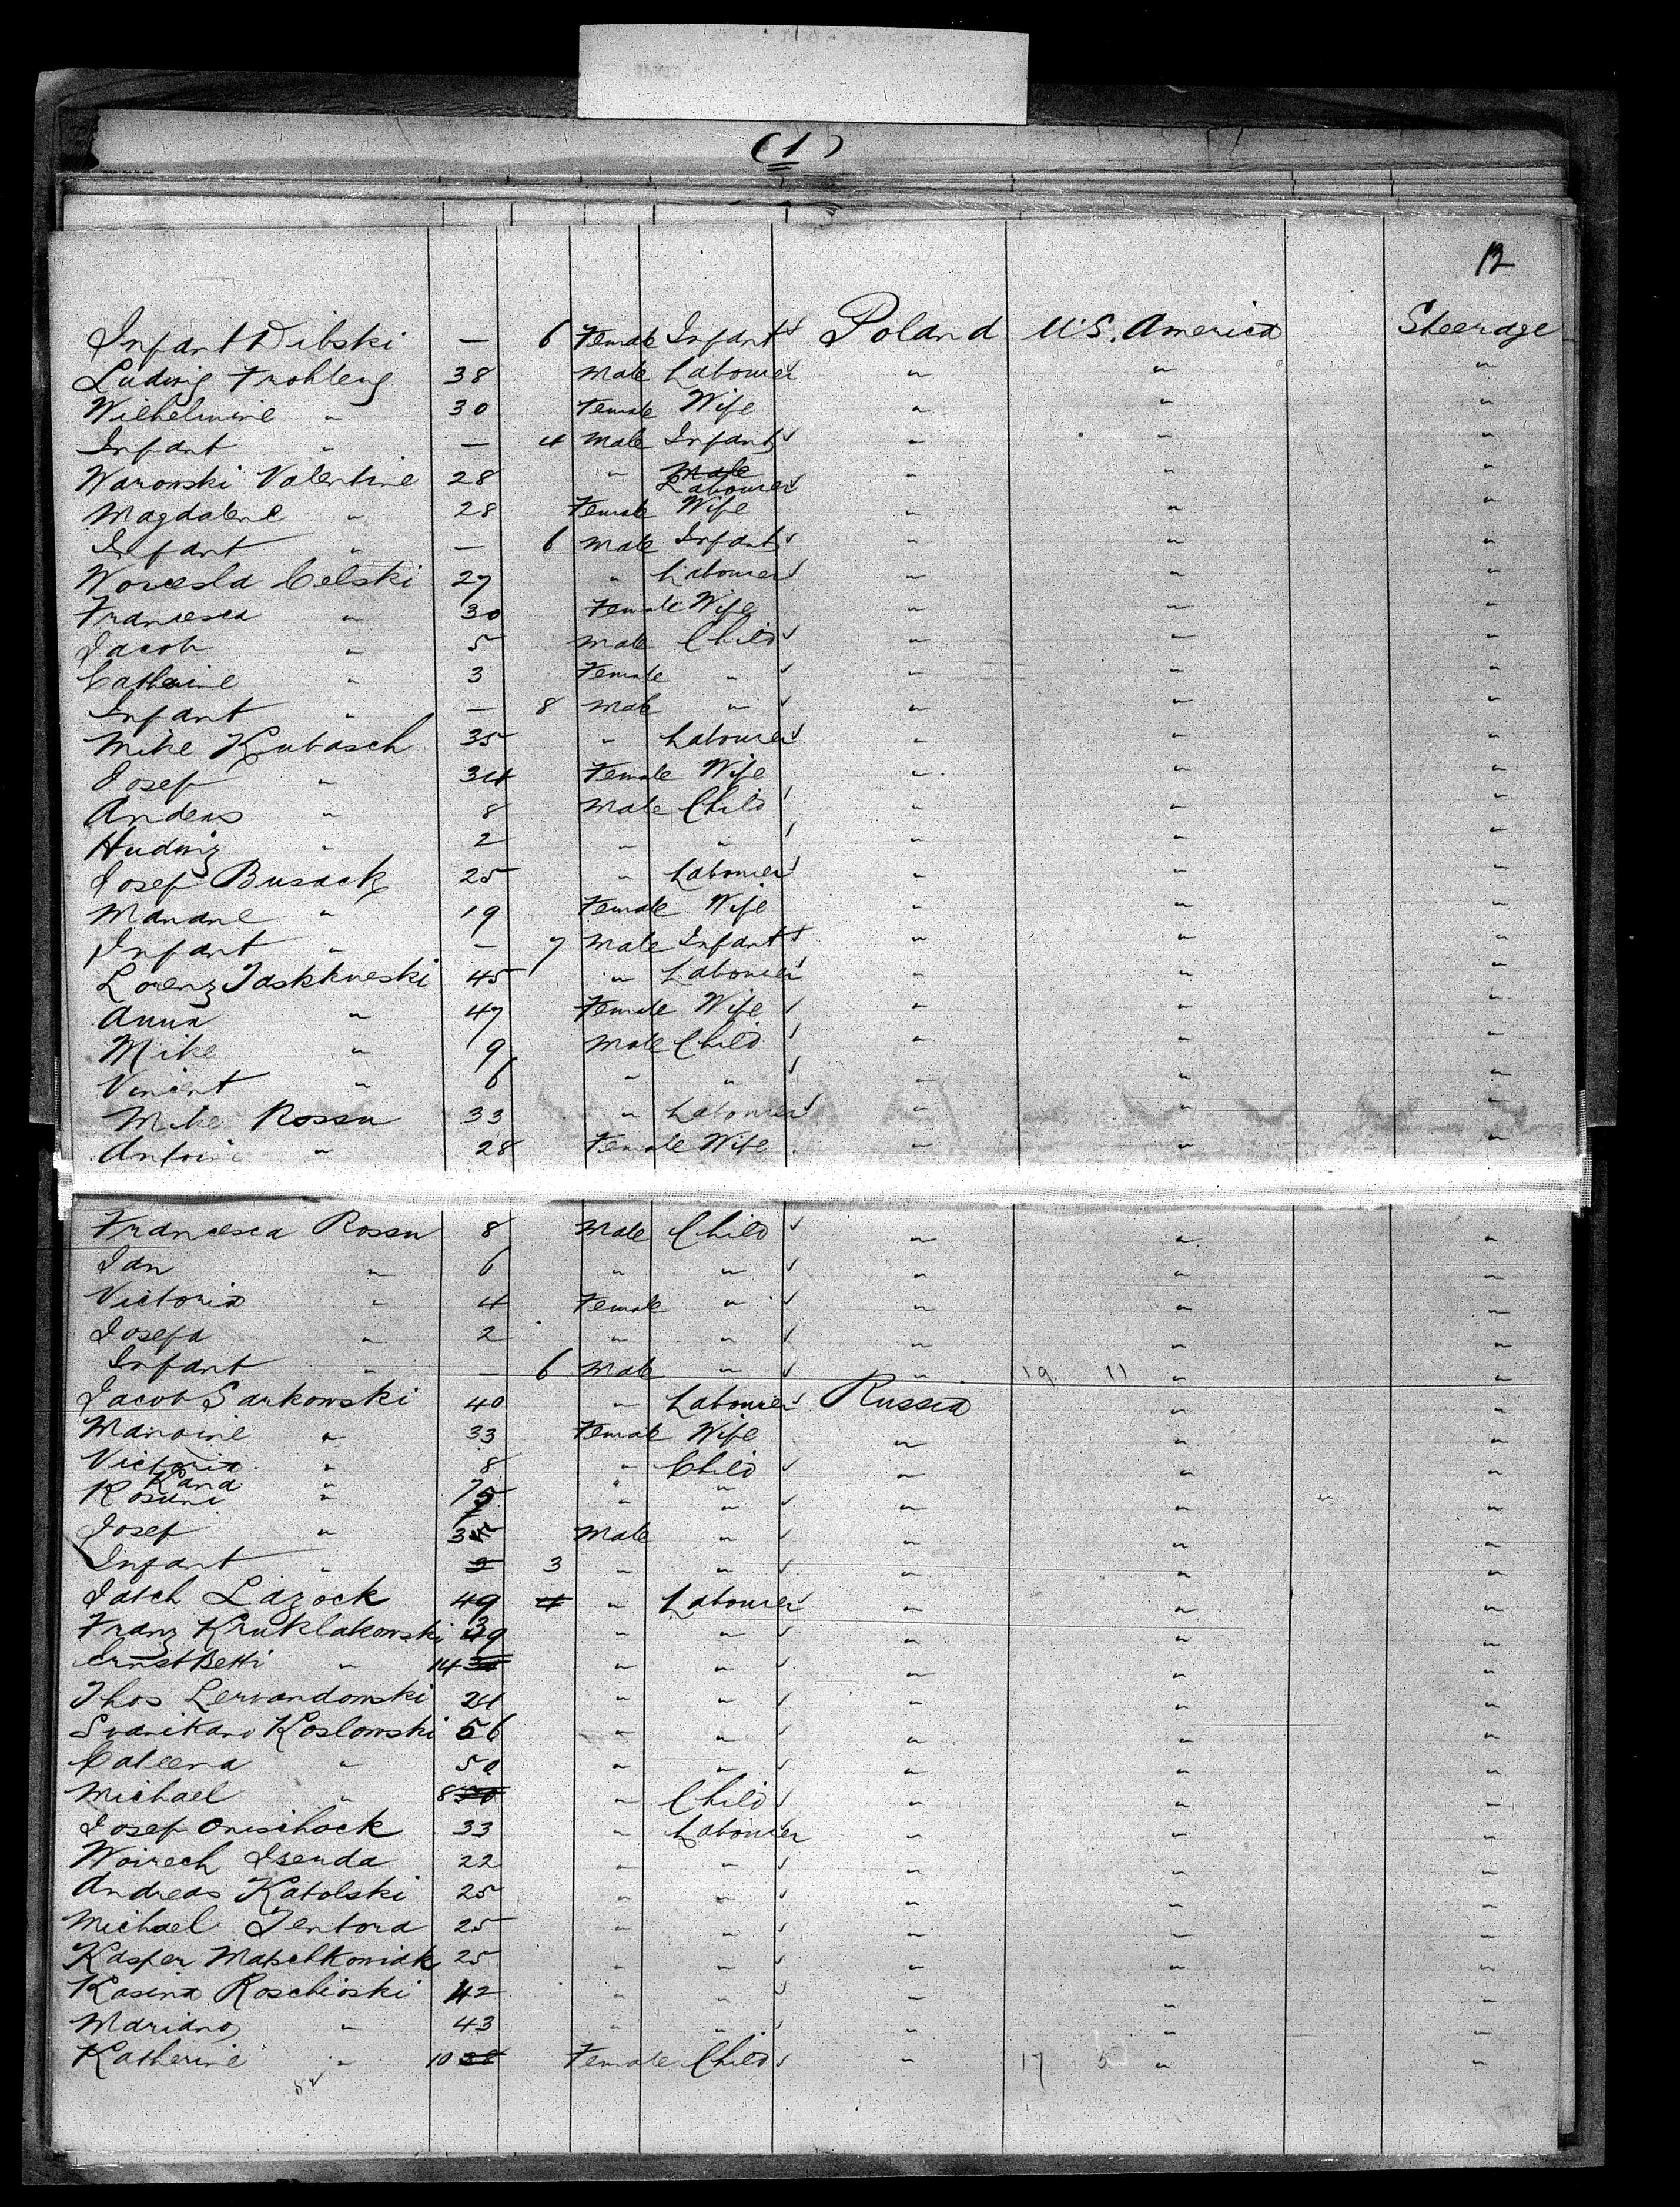 (1)
12
Infant Dibski — 6 Female Infant Poland U.S. America Steerage
Ludwig Frohleng 38 Male Labourer " " "
Wilhelmine " 30 Female Wife " " "
Infant " — 4 Male Infant " " "
Warowski Valentine 28 " Male Labourer " " "
Magdalene " 28 Female Wife " " "
Infant " — 6 Male Infant " " "
Woresla Celski 27 " Labourer " " "
Francesca " 30 Female Wife " " "
Jacob " 5 Male Child " " "
Catherine " 3 Female " " " "
Infant " — 8 Male " " " "
Mike Kubasch 35 " Labourer " " "
Josef " 34 Female Wife " " "
Andeas " 8 Male Child " " "
Hudwig " 2 " " " " "
Josef Busack 25 " Labourer " " "
Mariane " 19 Female Wife " " "
Infant " — 7 Male Infant " " "
Lorenz Jaskkueski 45 " Labourer " " "
Anna " 47 Female Wife " " "
Mike " 9 Male Child " " "
Vincent " 6 " " " " "
Mike Rossu 33 " Labourer " " "
Antoin " 28 Female Wife " " "
Francesca Rossu 8 Male Child " " "
Jan " 6 " " " " "
Victoria " 4 Female " " " "
Josefa " 2 " " " " "
Infant " — 6 Male " " 19 11 " "
Jacob Sarkowski 40 " Labourer Russia " "
Maroine " 33 Female Wife " " "
Victoria " 8 " Child " " "
Kana " 7 " "
Rosuni " 5 " " " " "
Josef " 3 Male " " " "
Infant " 2 3 " " " " "
Jatch Lazock 49 4 " Labourer " " "
Franz Kruklakowski 39 " " " " "
Ernst Betti " 14 " " " " "
Thos Lervandowski 24 " " " " "
Svanikano Koslowski 56 " " " " "
Cateena " 50 " " " " "
Michael " 8 50 " Child " " "
Josef Onischock 33 " Labourer " " "
Woirech Isenda 22 " " " " "
Andreas Katolski 25 " " " " "
Michael Jentora 25 " " " " "
Kasper Matschkowiak 25 " " " " "
Kasina Roschioski 42 " " " " "
Mariano " 43 " " " " "
Katherine " 10 Female Child " 17 5 " "